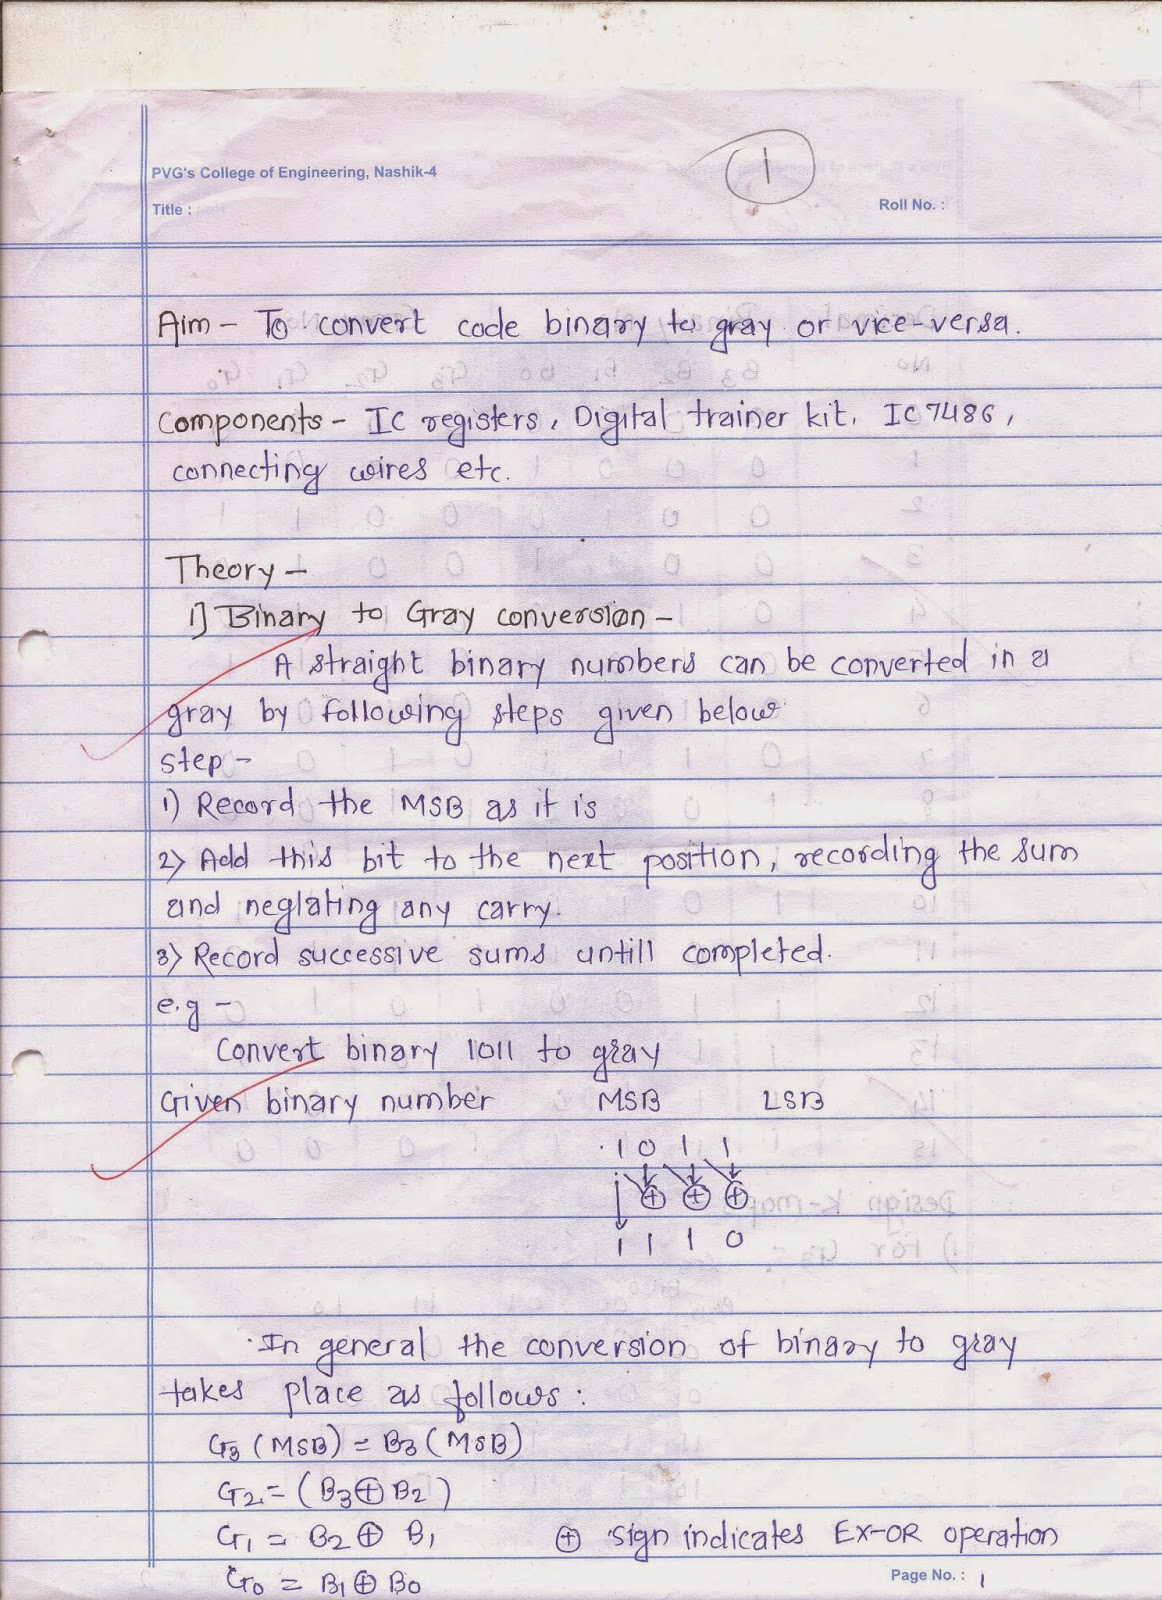 1
PVG's College of Engineering, Nashik-4
Title :
Roll No. :
Aim - To convert code binary to gray or vice-versa.
Components - IC registers, Digital trainer kit. IC 7486,
connecting wires etc.
Theory -
1] Binary to Gray conversion -
A straight binary numbers can be converted in a
gray by following steps given below
step -
1) Record the MSB as it is
2) Add this bit to the next position, recording the sum
and neglating any carry.
3) Record successive sums untill completed.
e.g -
Convert binary 1011 to gray
Given binary number MSB LSB
1 0 1 1
⊕ ⊕ ⊕
1 1 1 0
In general the conversion of binary to gray
takes place as follows:
G3 (MSB) = B3 (MSB)
G2 = (B3 ⊕ B2)
G1 = B2 ⊕ B1 ⊕ sign indicates EX-OR operation
G0 = B1 ⊕ B0
Page No. : 1